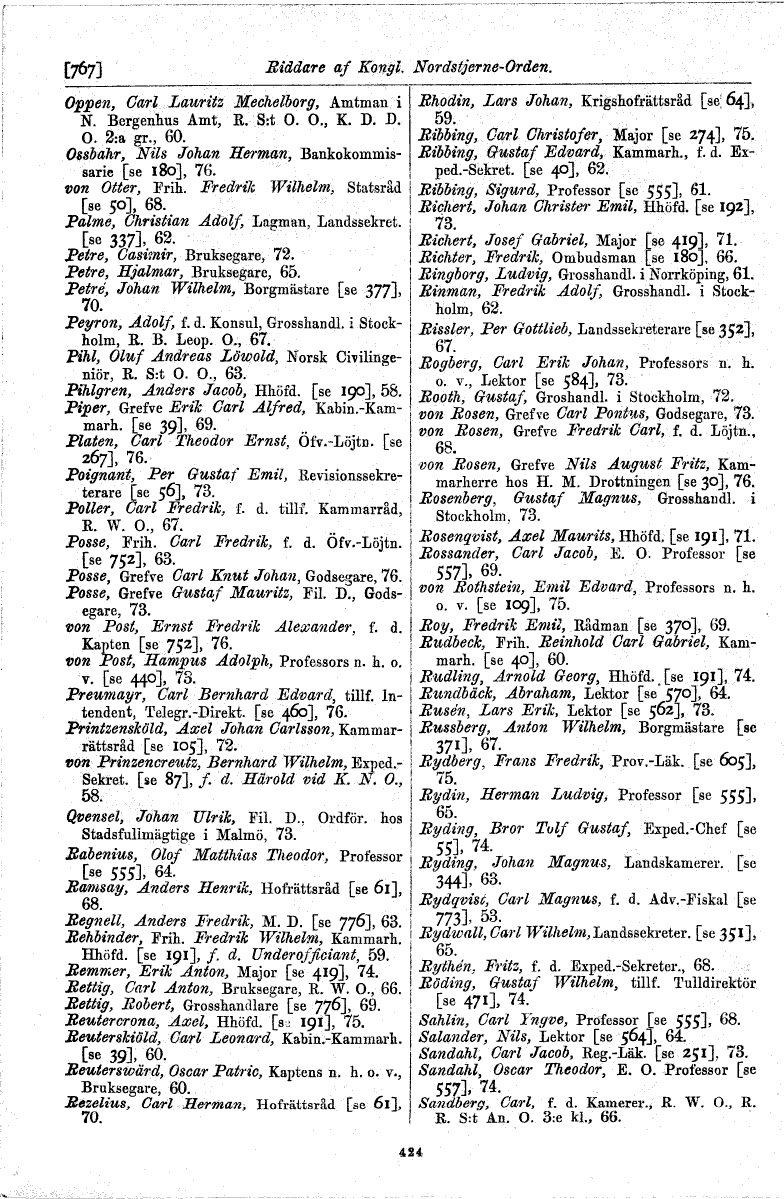 [767]
Riddare af Kongl. Nordstjerne-Orden.
Oppen, Carl Lauritz Mechelborg, Amtman i
N. Bergenhus Amt, R. S:t O. O., K. D. D.
O. 2:a gr., 60.
Ossbahr, Nils Johan Herman, Bankokommis-
sarie [se 180], 76.
von Otter, Frih. Fredrik Wilhelm, Statsråd
[se 50], 68.
Palme, Christian Adolf, Lagman, Landssekret.
[se 337], 62.
Petre, Casimir, Bruksegare, 72.
Petre, Hjalmar, Bruksegare, 65.
Petré, Johan Wilhelm, Borgmästare [se 377],
70.
Peyron, Adolf, f. d. Konsul, Grosshandl. i Stock-
holm, R. B. Leop. O., 67.
Pihl, Oluf Andreas Löwold, Norsk Civilinge-
niör, R. S:t O. O., 63.
Pihlgren, Anders Jacob, Hhöfd. [se 190], 58.
Piper, Grefve Erik Carl Alfred, Kabin.-Kam-
marh. [se 39], 69.
Platen, Carl Theodor Ernst, Öfv.-Löjtn. [se
267], 76.
Poignant, Per Gustaf Emil, Revisionssekre-
terare [se 56], 73.
Poller, Carl Fredrik, f. d. tillf. Kammarråd,
R. W. O., 67.
Posse, Frih. Carl Fredrik, f. d. Öfv.-Löjtn.
[se 752], 63.
Posse, Grefve Carl Knut Johan, Godsegare, 76.
Posse, Grefve Gustaf Mauritz, Fil. D., Gods-
egare, 73.
von Post, Ernst Fredrik Alexander, f. d.
Kapten [se 752], 76.
von Post, Hampus Adolph, Professors n. h. o.
v. [se 440], 73.
Preumayr, Carl Bernhard Edvard, tillf. In-
tendent, Telegr.-Direkt. [se 460], 76.
Printzensköld, Axel Johan Carlsson, Kammar-
rättsråd [se 105], 72.
von Prinzencreutz, Bernhard Wilhelm, Exped.-
Sekret. [se 87], f. d. Härold vid K. N. O.,
58.
Qvensel, Johan Ulrik, Fil. D., Ordför. hos
Stadsfullmägtige i Malmö, 73.
Rabenius, Olof Matthias Theodor, Professor
[se 555], 64.
Ramsay, Anders Henrik, Hofrättsråd [se 61],
68.
Regnell, Anders Fredrik, M. D. [se 776], 63.
Rehbinder, Frih. Fredrik Wilhelm, Kammarh.
Hhöfd. [se 191], f. d. Underofficiant, 59.
Remmer, Erik Anton, Major [se 419], 74.
Rettig, Carl Anton, Bruksegare, R. W. O., 66.
Rettig, Robert, Grosshandlare [se 776], 69.
Reutercrona, Axel, Hhöfd. [se 191], 75.
Reuterskiöld, Carl Leonard, Kabin.-Kammarh.
[se 39], 60.
Reuterswärd, Oscar Patric, Kaptens n. h. o. v.,
Bruksegare, 60.
Rezelius, Carl Herman, Hofrättsråd [se 61],
70.
Rhodin, Lars Johan, Krigshofrättsråd [se 64],
59.
Ribbing, Carl Christofer, Major [se 274], 75.
Ribbing, Gustaf Edvard, Kammarh., f. d. Ex-
ped.-Sekret. [se 40], 62.
Ribbing, Sigurd, Professor [se 555], 61.
Richert, Johan Christer Emil, Hhöfd. [se 192],
73.
Richert, Josef Gabriel, Major [se 419], 71.
Richter, Fredrik, Ombudsman [se 180], 66.
Ringborg, Ludvig, Grosshandl. i Norrköping, 61.
Rinman, Fredrik Adolf, Grosshandl. i Stock-
holm, 62.
Rissler, Per Gottlieb, Landssekreterare [se 352],
67.
Rogberg, Carl Erik Johan, Professors n. h.
o. v., Lektor [se 584], 73.
Rooth, Gustaf, Groshandl. i Stockholm, 72.
von Rosen, Grefve Carl Pontus, Godsegare, 73.
von Rosen, Grefve Fredrik Carl, f. d. Löjtn.,
68.
von Rosen, Grefve Nils August Fritz, Kam-
marherre hos H. M. Drottningen [se 30], 76.
Rosenberg, Gustaf Magnus, Grosshandl. i
Stockholm, 73.
Rosenqvist, Axel Maurits, Hhöfd. [se 191], 71.
Rossander, Carl Jacob, E. O. Professor [se
557], 69.
von Rothstein, Emil Edvard, Professors n. h.
o. v. [se 109], 75.
Roy, Fredrik Emil, Rådman [se 370], 69.
Rudbeck, Frih. Reinhold Carl Gabriel, Kam-
marh. [se 40], 60.
Rudling, Arnold Georg, Hhöfd. [se 191], 74.
Rundbäck, Abraham, Lektor [se 570], 64.
Rusén, Lars Erik, Lektor [se 562], 73.
Russberg, Anton Wilhelm, Borgmästare [se
371], 67.
Rydberg, Frans Fredrik, Prov.-Läk. [se 605],
75.
Rydin, Herman Ludvig, Professor [se 555],
65.
Ryding, Bror Tolf Gustaf, Exped.-Chef [se
55], 74.
Ryding, Johan Magnus, Landskamerer. [se
344], 63.
Rydqvist, Carl Magnus, f. d. Adv.-Fiskal [se
773], 53.
Rydwall, Carl Wilhelm, Landssekreter. [se 351],
65.
Rythén, Fritz, f. d. Exped.-Sekreter., 68.
Röding, Gustaf Wilhelm, tillf. Tulldirektör
[se 471], 74.
Sahlin, Carl Yngve, Professor [se 555], 68.
Salander, Nils, Lektor [se 564], 64.
Sandahl, Carl Jacob, Reg.-Läk. [se 251], 73.
Sandahl, Oscar Theodor, E. O. Professor [se
557], 74.
Sandberg, Carl, f. d. Kamerer., R. W. O., R.
R. S:t An. O. 3:e kl., 66.
424